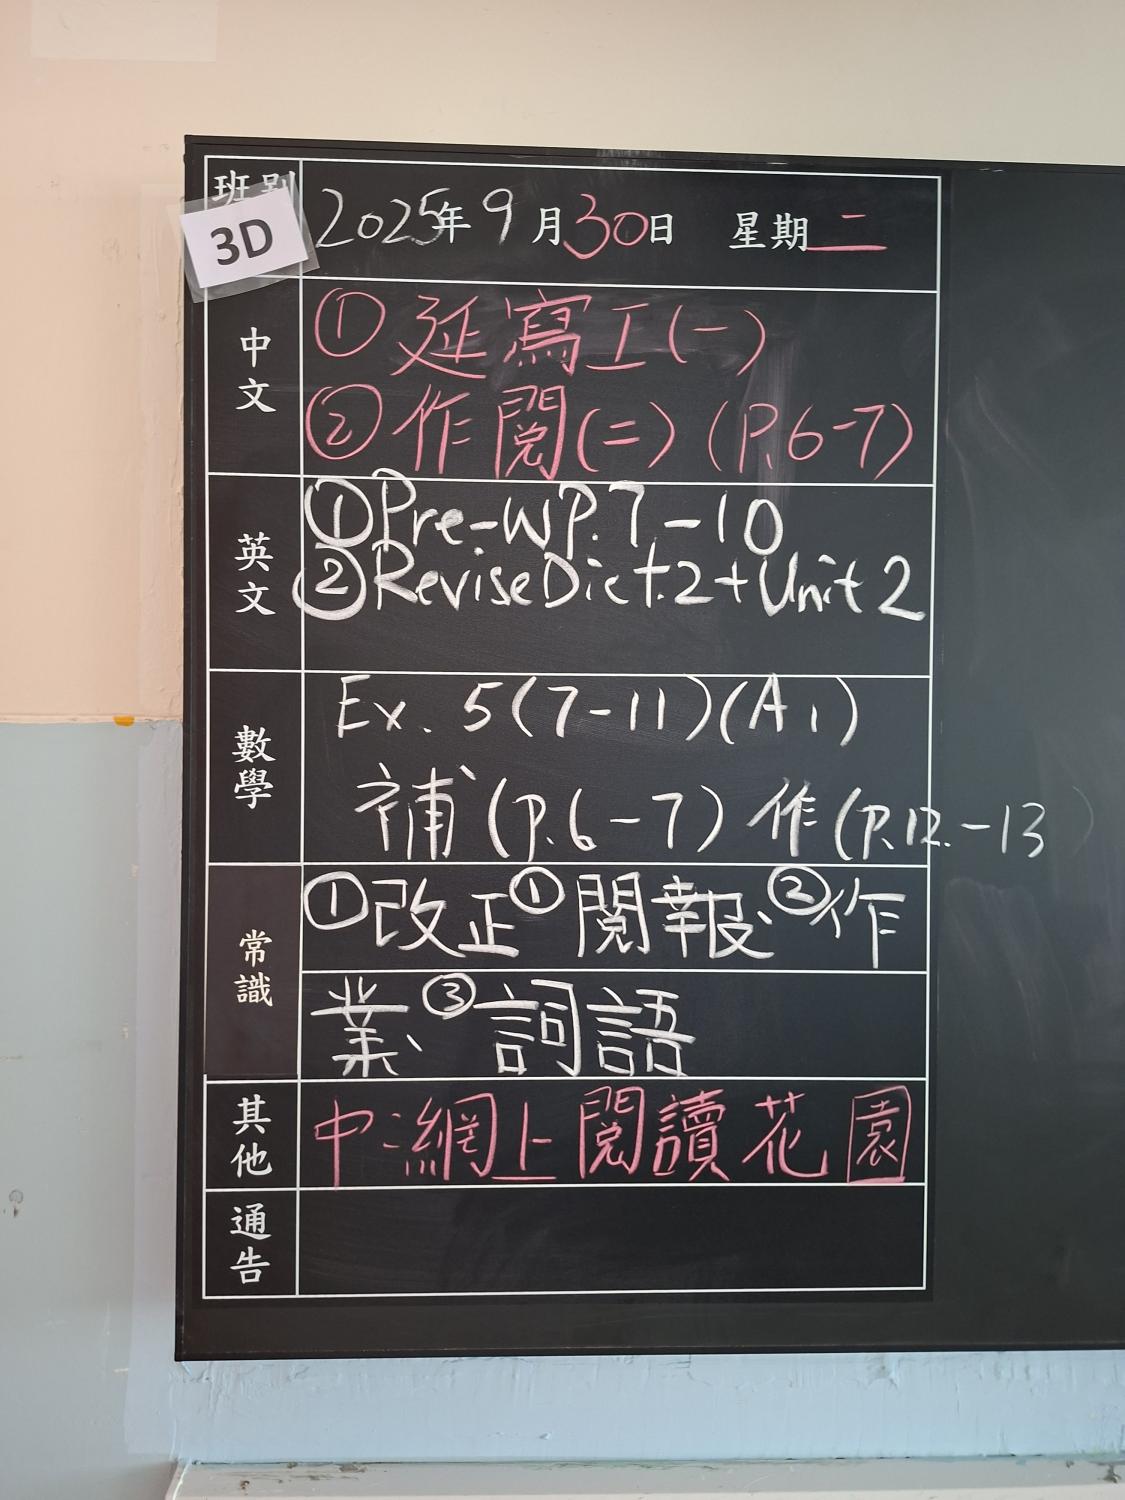 班別
3D
2025年9月30日 星期二
中文
①延寫工(一)
②作閱(二) (P.6-7)
英文
①Pre-WP.7-10
②Revise Dict.2+Unit 2
數學
Ex. 5(7-11)(A1)
補(P.6-7) 作(P.12-13)
常識
①改正①閱報、②作
業、③詞語
其他
中:網上閱讀花園
通告